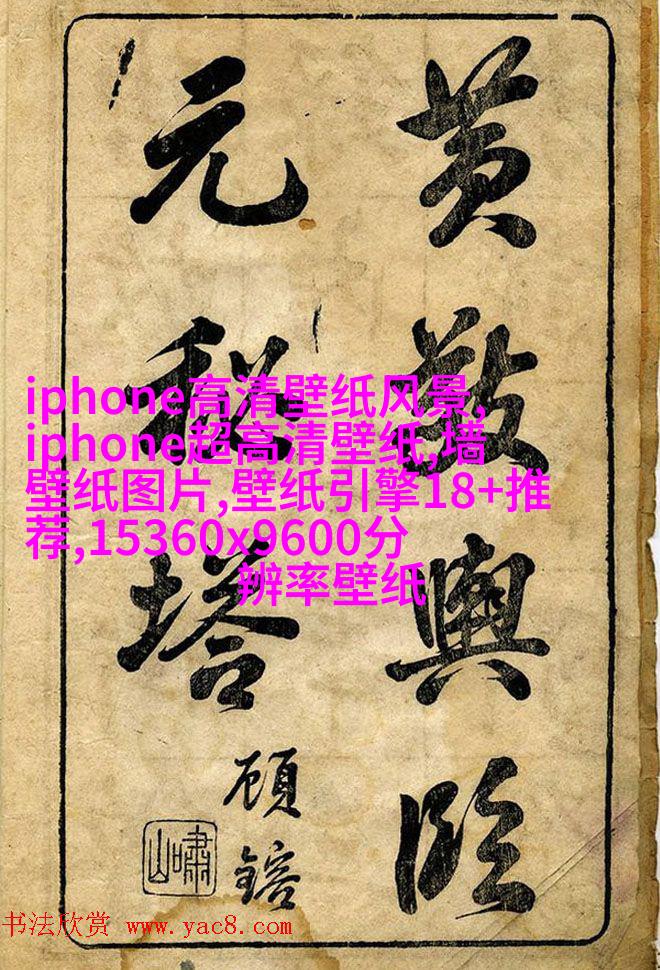 黄敬輿臨
元秘塔
顧鎔
嘯山
iphone高清壁纸风景,
iphone超高清壁纸,墙
壁纸图片,壁纸引擎18+推
荐,15360x9600分
辨率壁纸
书法欣赏 www.yac8.com